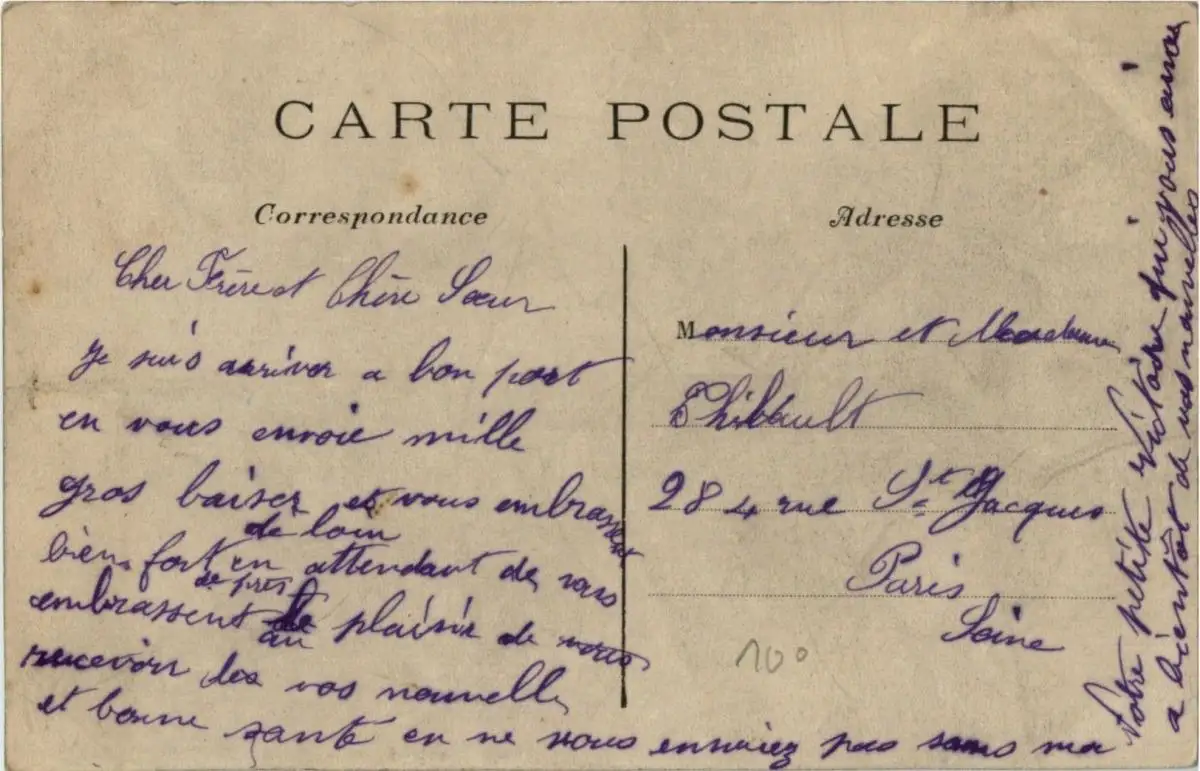 CARTE POSTALE
Correspondance
Adresse
Cher Frère et Chère Sœur
Je suis arriver a bon port
en vous envoie mille
gros baiser et vous embrassent
de loin
bien fort en attendant de vous
de près
embrassent le plaisir de vous
au
recevoir des vos nouvelle
et bonne santé en ne vous ennuiez pas sans ma
Monsieur et Madame
Thibault
284 rue St Jacques
Paris
Seine
100
Votre petite Victoire qui vous aime
a bientôt de vos nouvelles